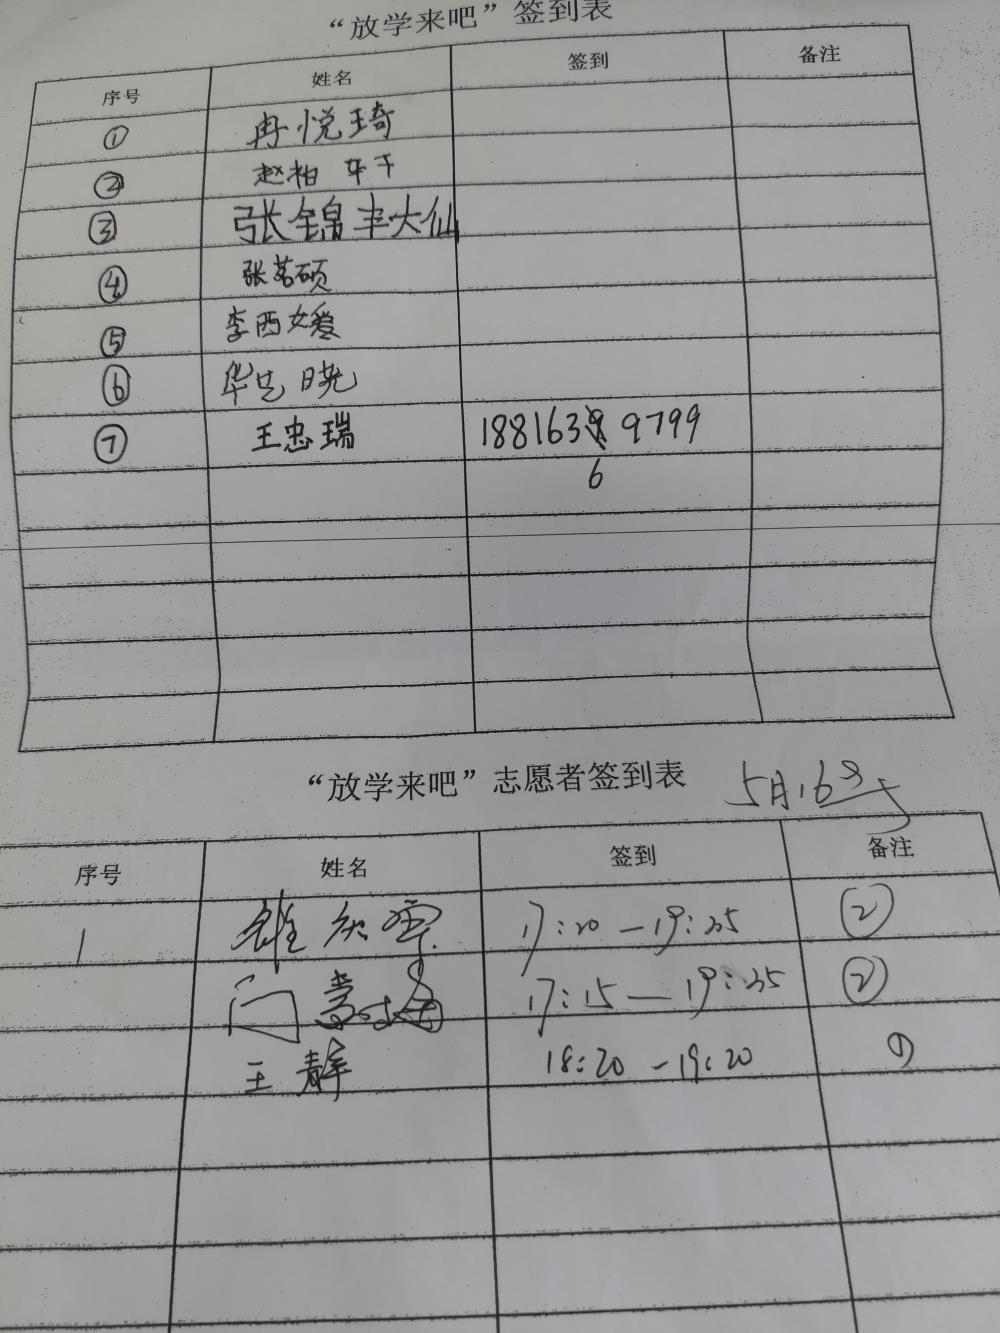 “放学来吧”签到表
序号 姓名 签到 备注
① 冉悦琦
② 赵柏轩
③ 张锦丰大仙
④ 张茗硕
⑤ 李西媛
⑥ 华先晓
⑦ 王忠瑞 18816399799
6
“放学来吧”志愿者签到表 5月16号
序号 姓名 签到 备注
1 17:20—19:35 ②
门 17:15—19:35 ②
王静 18:20—19:20 ①